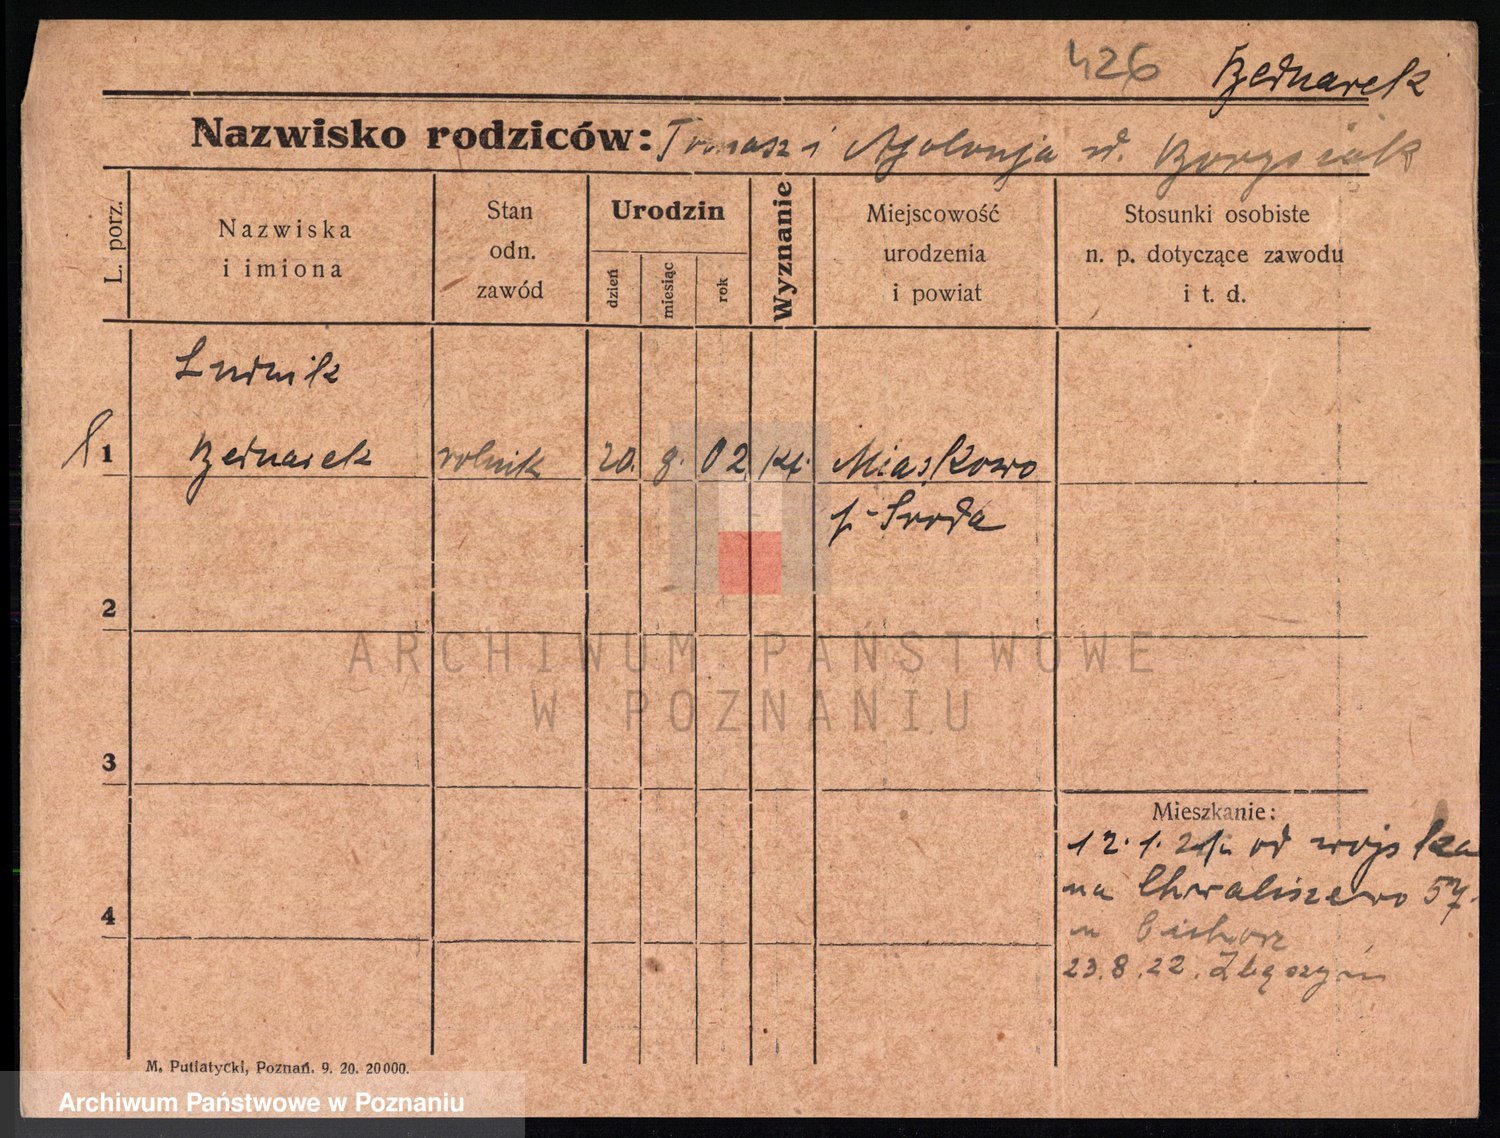 426 Bednarek
Nazwisko rodziców: Tomasz i Apolonja
L. porz.
Nazwiska
i imiona
Stan
odn.
zawód
Urodzin
dzień
miesiąc
rok
Wyznanie
Miejscowość
urodzenia
i powiat
Stosunki osobiste
n. p. dotyczące zawodu
i t. d.
Ludwik
1 Bednarek rolnik 20. 02 kt. Miaskowo
p. Sroda
2
3
4
Mieszkanie:
12.1. od wojska
na Chwaliszewo 57.
u Cichosz
23.8.22. Zbąszyń
M. Putiatycki, Poznań. 9. 20. 20000.
ARCHIWUM PAŃSTWOWE
W POZNANIU
Archiwum Państwowe w Poznaniu